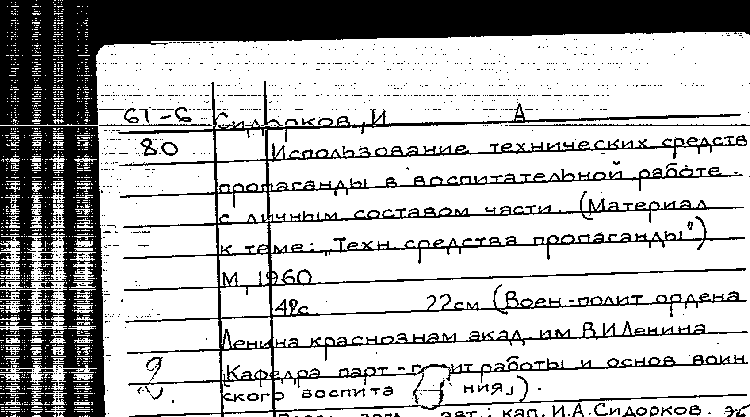 61-6 Сидорков, И А
80 Использование технических средств
пропаганды в воспитательной работе
с личным составом части. (Материал
к теме: „Техн. средства пропаганды")
М, 1960
22см (Воен-полит ордена
Ленина краснознам акад. им В.И Ленина
Кафедра парт- работы и основ воин
ского воспита ния,).
2.
авт.: кап. И.А. Сидорков.